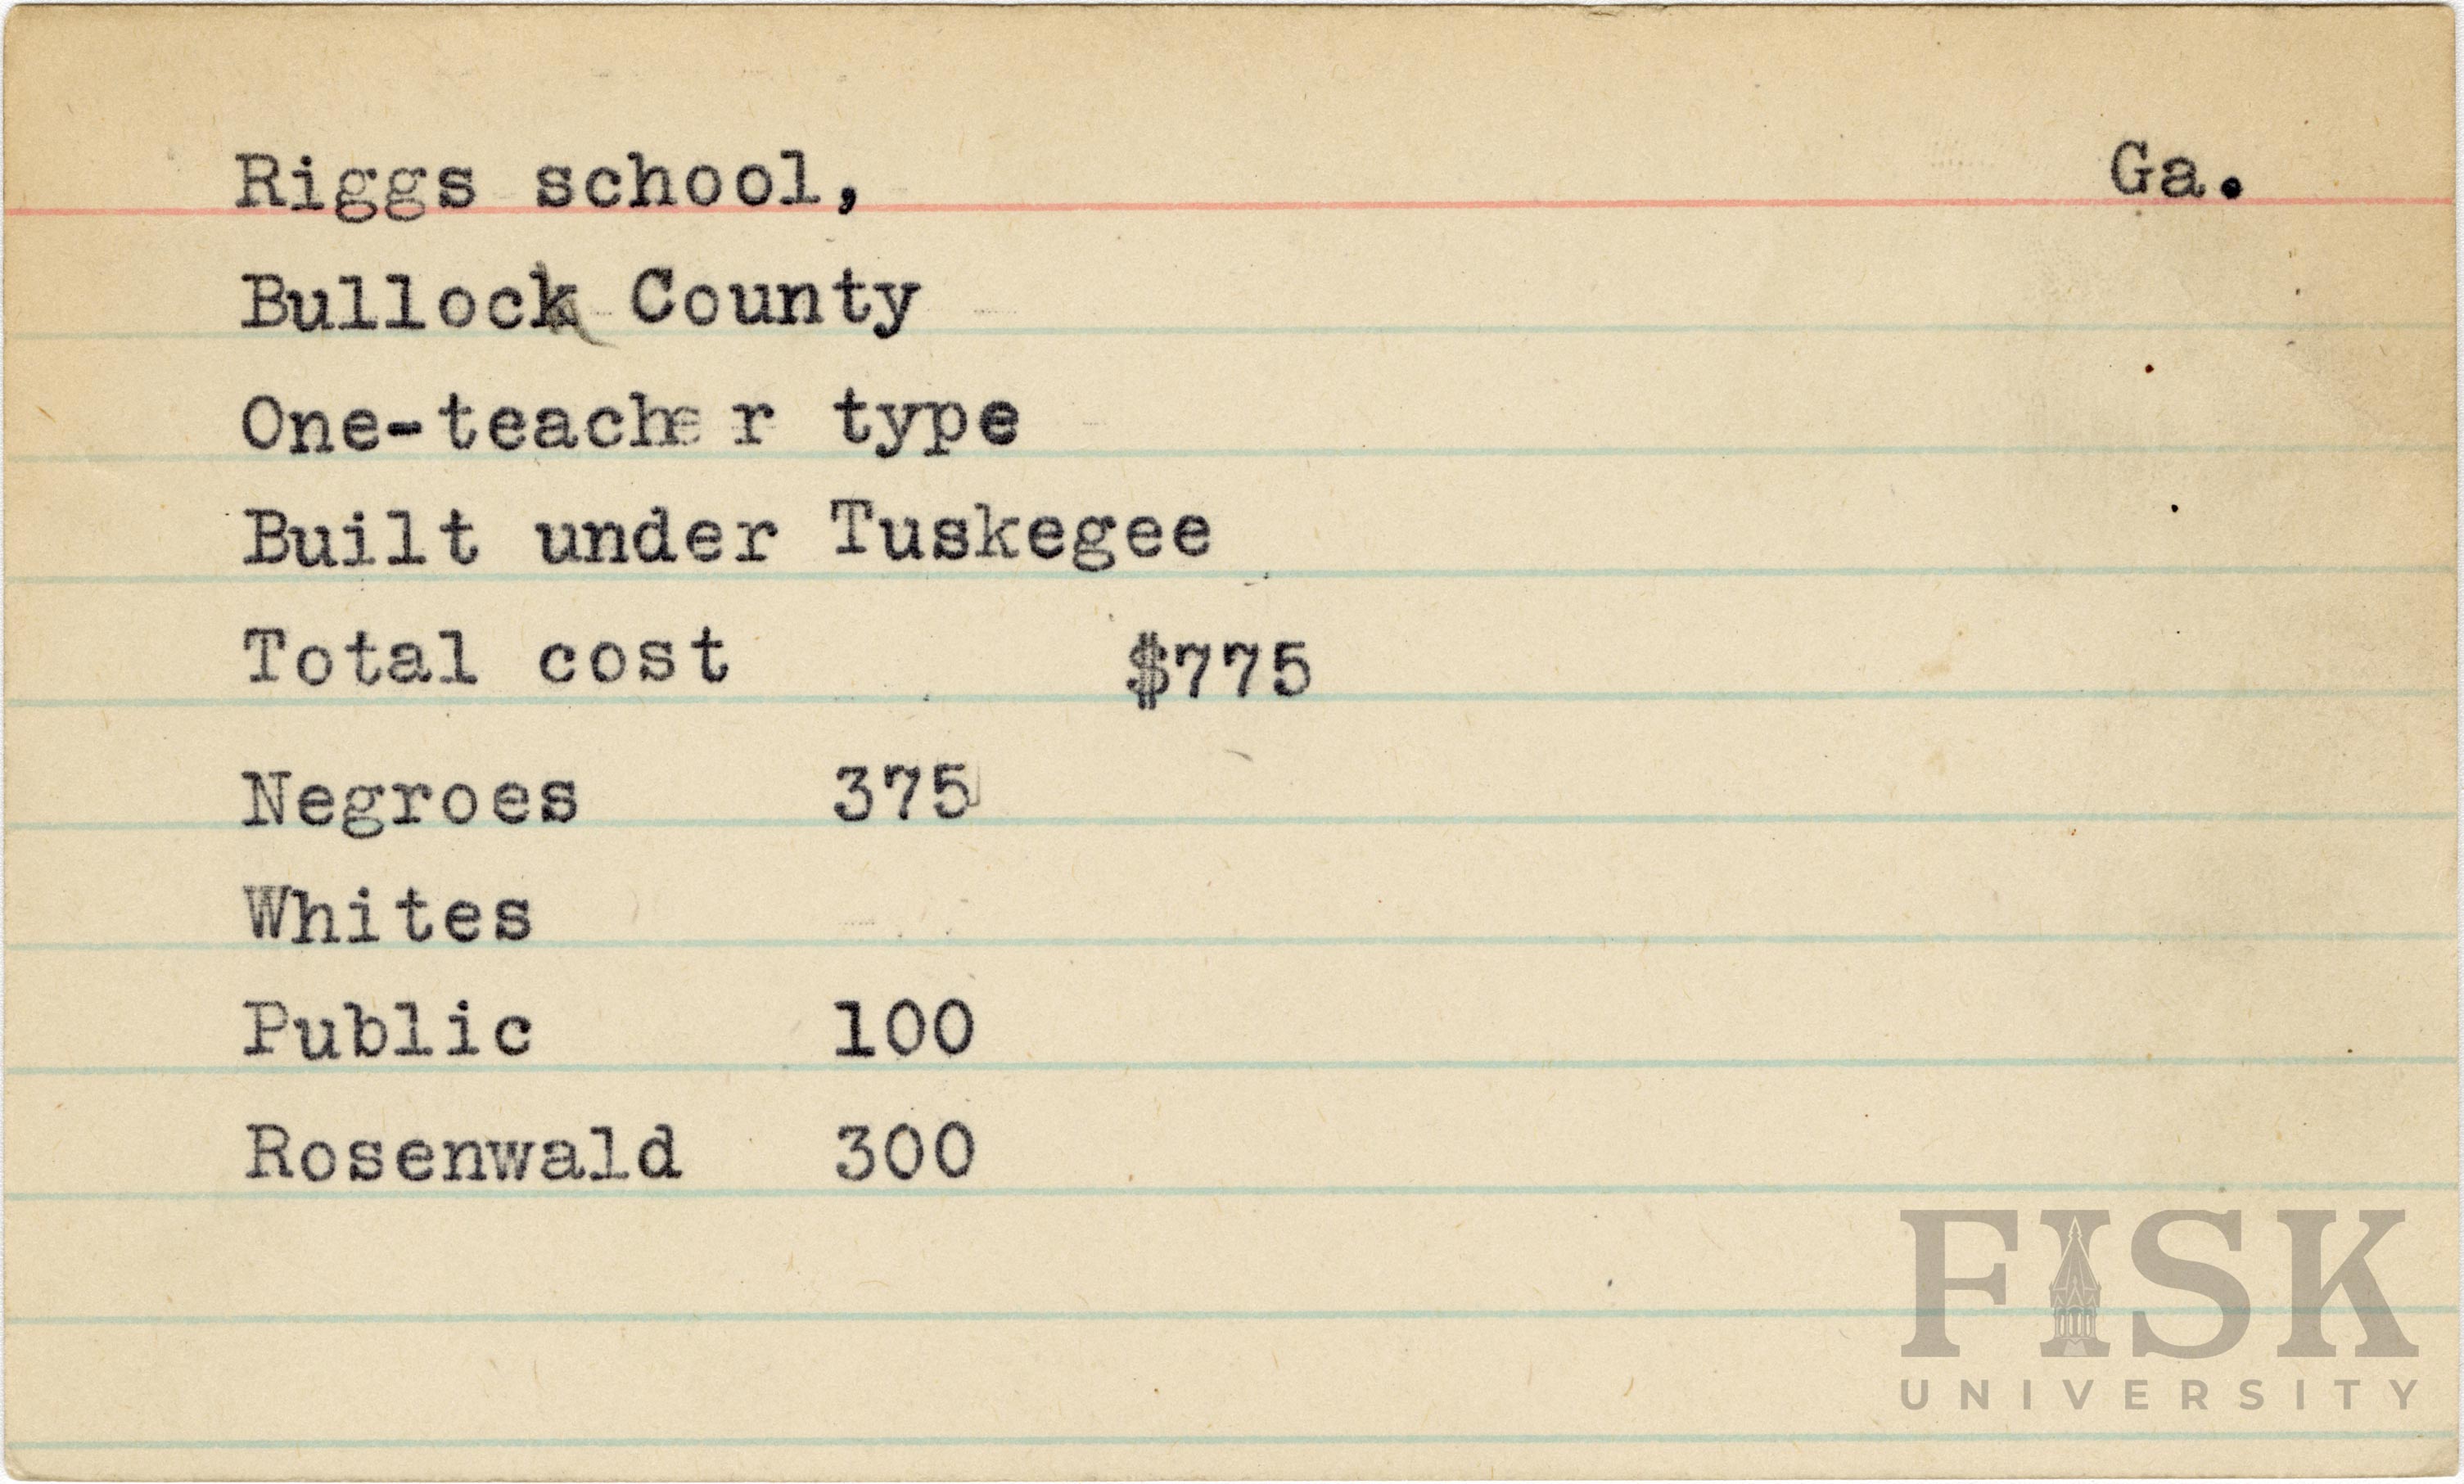 Riggs school, Ga.
Bullock County
One-teacher type
Built under Tuskegee
Total cost $775
Negroes 375
Whites
Public 100
Rosenwald 300
FISK
UNIVERSITY